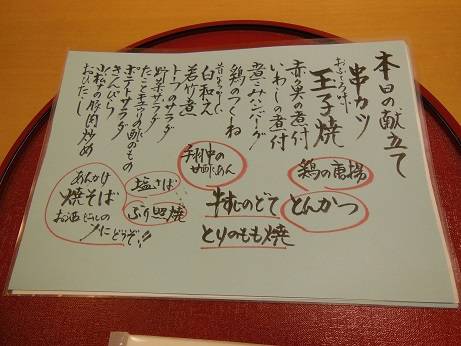 本日の献立て
串カツ
おふくろの味
玉子焼
赤魚の煮付
いわしの煮付
煮こみハンバーグ
鶏のつくね
昔なつかしい
白和え
若竹煮
トーフのサラダ
野菜サラダ
たこと玉うりの酢のもの
ポテトサラダ
きんぴら
小松菜の豚肉炒め
おひたし
鶏の唐揚
とんかつ
手羽中の
甘酢あん
牛すじのどて
とりのもも焼
塩さば
ぶり照焼
あんかけ
焼そば
お酒
〆にどうぞ!!